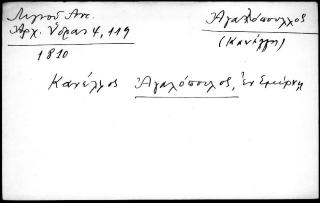 Λιγνοῦ Ἀντ.
Ἀρχ. Ὕδρας 4, 119
1810
Ἀγαλόπουλος
(Κανέλλη)
Κανέλλος Ἀγαλόπουλος, ἐν Σμύρνῃ